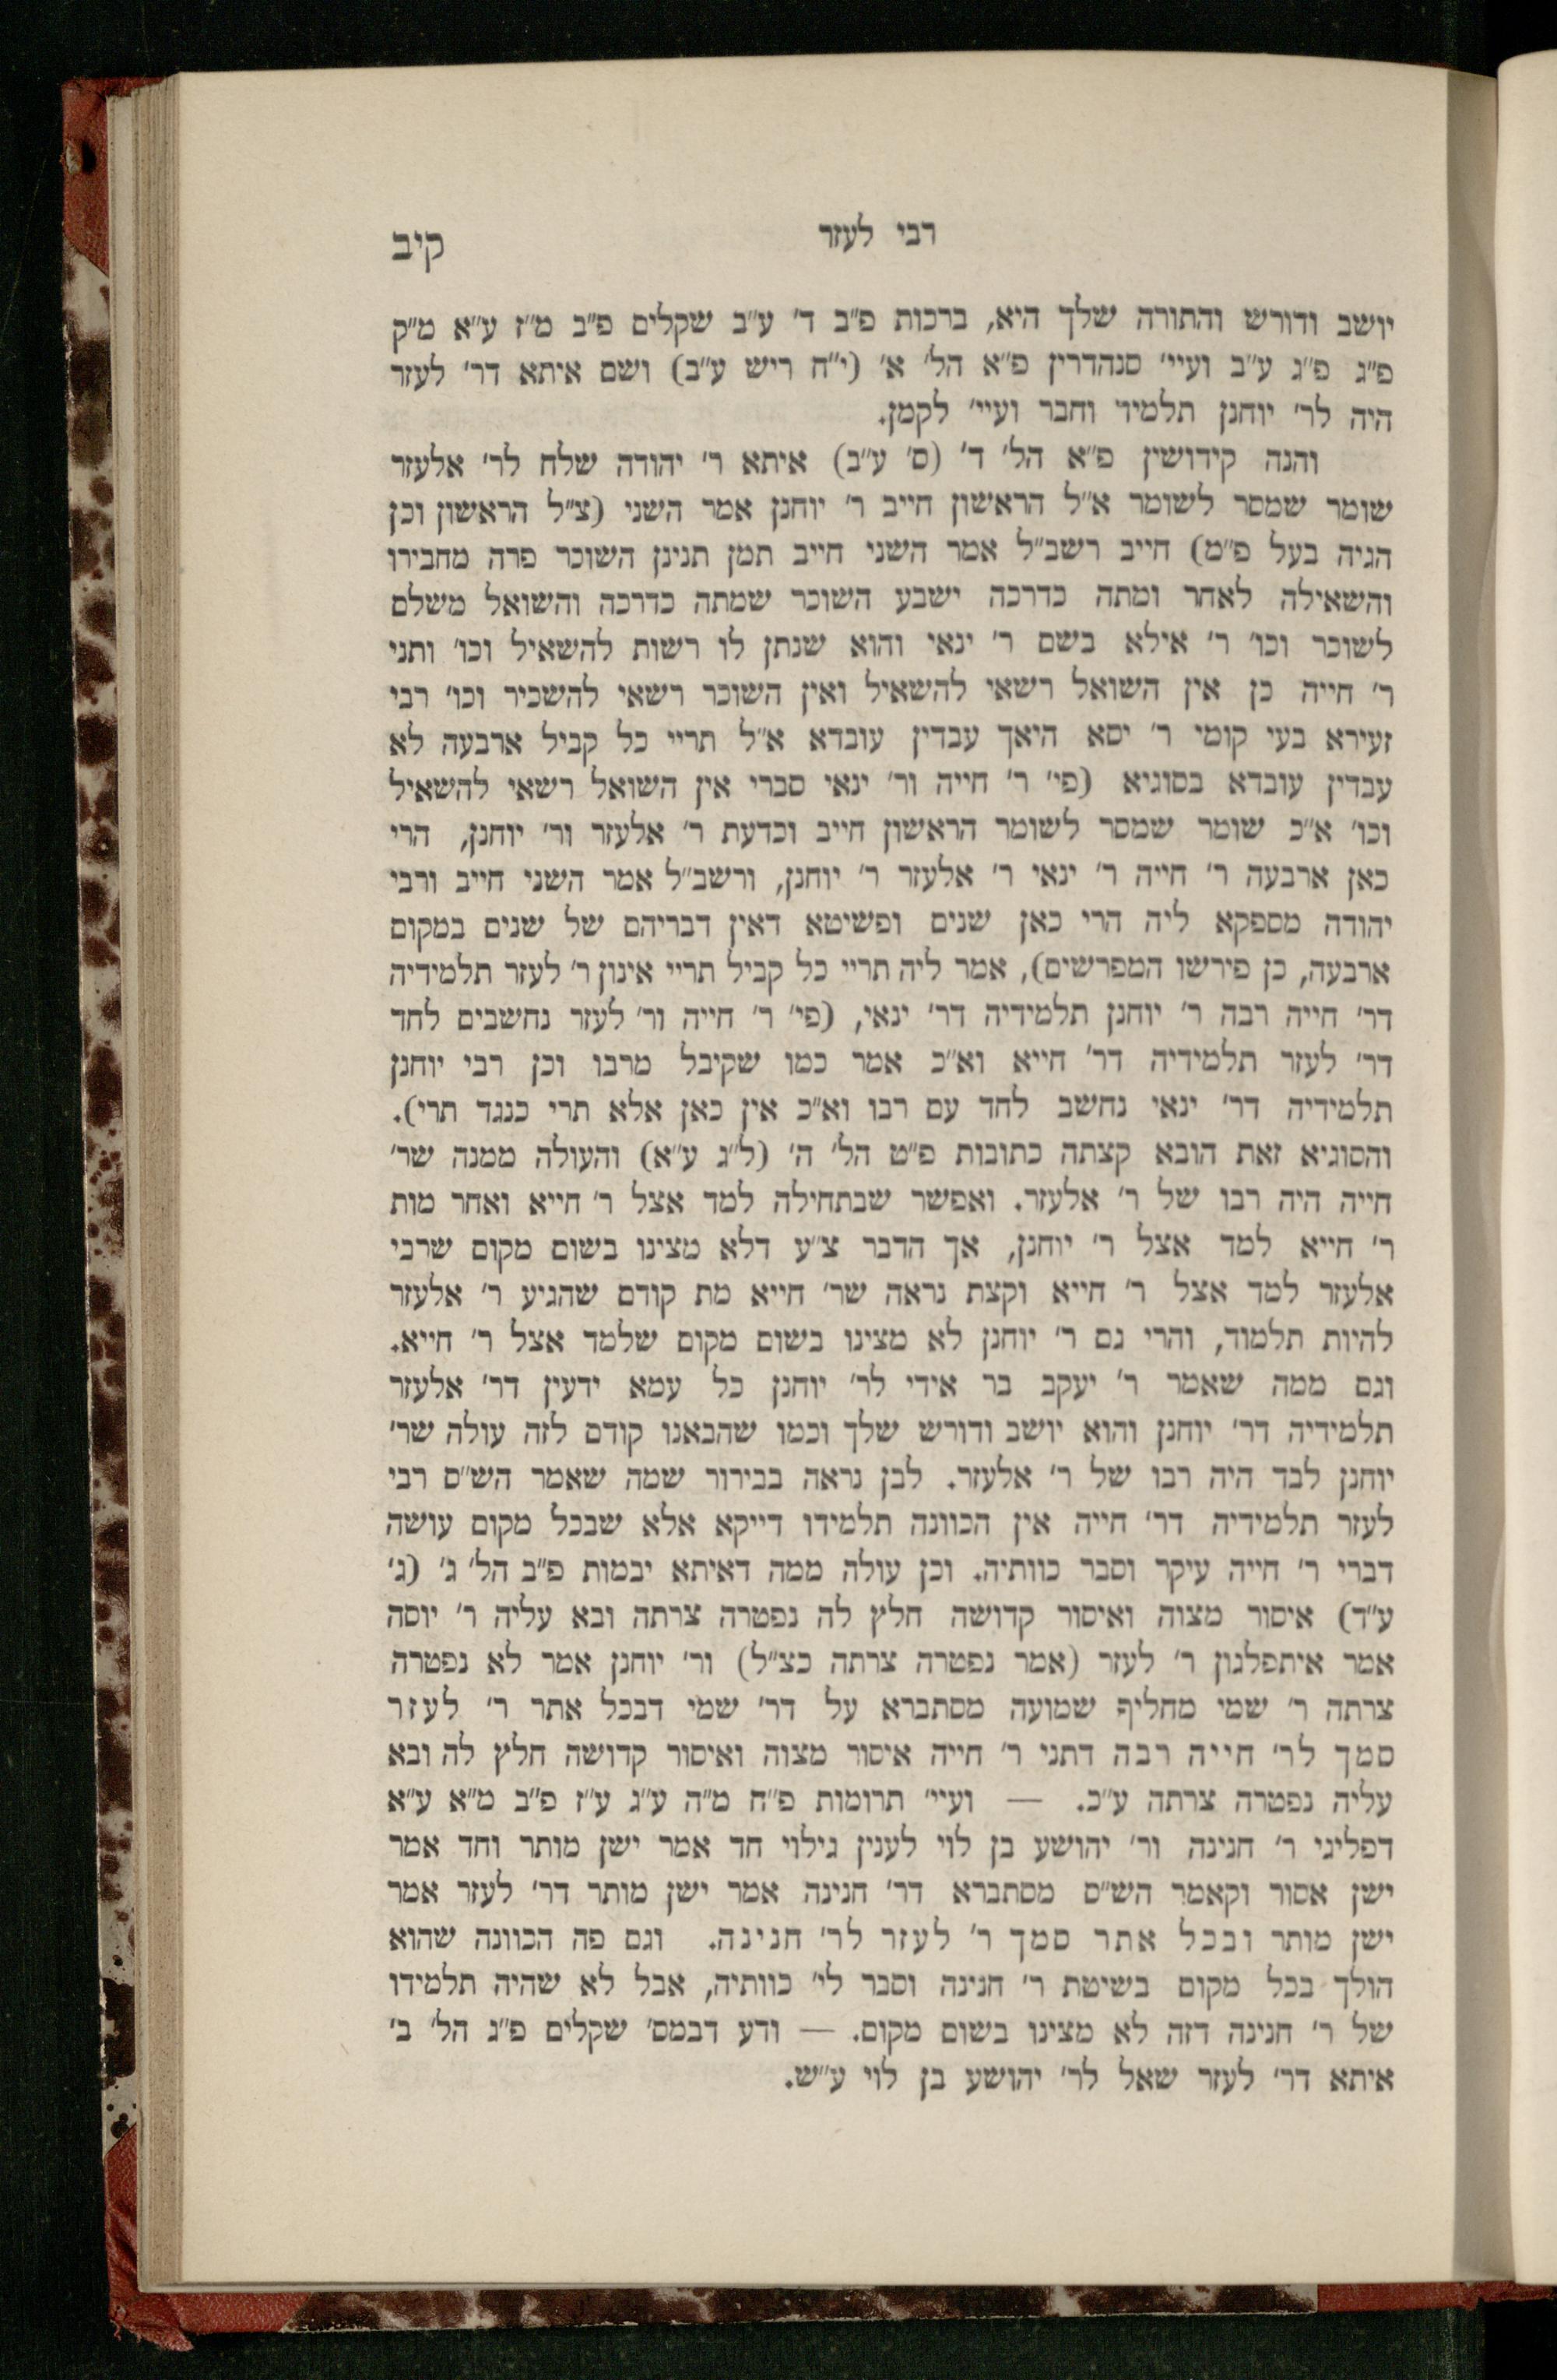 רבי לעזר
קיב
יושב ודורש והתורה שלך היא, ברכות פ״ב ד׳ ע״ב שקלים פ״ב מ״ז ע״א מ״ק
פ״ג פ״ג ע״ב ועיי׳ סנהדרין פ״א הל׳ א׳ (י״ח ריש ע״ב) ושם איתא דר׳ לעזר
היה לר׳ יוחנן תלמיד וחבר ועיי׳ לקמן.
והנה קידושין פ״א הל׳ ד׳ (ס׳ ע״ב) איתא ר׳ יהודה שלח לר׳ אלעזר
שומר שמסר לשומר א״ל הראשון חייב ר׳ יוחנן אמר השני (צ״ל הראשון וכן
הגיה בעל פ״מ) חייב רשב״ל אמר השני חייב תמן תנינן השוכר פרה מחבירו
והשאילה לאחר ומתה כדרכה ישבע השוכר שמתה כדרכה והשואל משלם
לשוכר וכו׳ ר׳ אילא בשם ר׳ ינאי והוא שנתן לו רשות להשאיל וכו׳ ותני
ר׳ חייה כן אין השואל רשאי להשאיל ואין השוכר רשאי להשכיר וכו׳ רבי
זעירא בעי קומי ר׳ יסא היאך עבדין עובדא א״ל תריי כל קביל ארבעה לא
עבדין עובדא בסוגיא (פי׳ ר׳ חייה ור׳ ינאי סברי אין השואל רשאי להשאיל
וכו׳ א״כ שומר שמסר לשומר הראשון חייב וכדעת ר׳ אלעזר ור׳ יוחנן, הרי
כאן ארבעה ר׳ חייה ר׳ ינאי ר׳ אלעזר ר׳ יוחנן, ורשב״ל אמר השני חייב ורבי
יהודה מספקא ליה הרי כאן שנים ופשיטא דאין דבריהם של שנים במקום
ארבעה, כן פירשו המפרשים), אמר ליה תריי כל קביל תריי אינון ר׳ לעזר תלמידיה
דר׳ חייה רבה ר׳ יוחנן תלמידיה דר׳ ינאי, (פי׳ ר׳ חייה ור׳ לעזר נחשבים לחד
דר׳ לעזר תלמידיה דר׳ חייא וא״כ אמר כמו שקיבל מרבו וכן רבי יוחנן
תלמידיה דר׳ ינאי נחשב לחד עם רבו וא״כ אין כאן אלא תרי כנגד תרי).
והסוגיא זאת הובא קצתה כתובות פ״ט הל׳ ה׳ (ל״ג ע״א) והעולה ממנה שר׳
חייה היה רבו של ר׳ אלעזר. ואפשר שבתחילה למד אצל ר׳ חייא ואחר מות
ר׳ חייא למד אצל ר׳ יוחנן, אך הדבר צ״ע דלא מצינו בשום מקום שרבי
אלעזר למד אצל ר׳ חייא וקצת נראה שר׳ חייא מת קודם שהגיע ר׳ אלעזר
להיות תלמוד, והרי גם ר׳ יוחנן לא מצינו בשום מקום שלמד אצל ר׳ חייא.
וגם ממה שאמר ר׳ יעקב בר אידי לר׳ יוחנן כל עמא ידעין דר׳ אלעזר
תלמידיה דר׳ יוחנן והוא יושב ודורש שלך וכמו שהבאנו קודם לזה עולה שר׳
יוחנן לבד היה רבו של ר׳ אלעזר. לכן נראה בבירור שמה שאמר הש״ס רבי
לעזר תלמידיה דר׳ חייה אין הכוונה תלמידו דייקא אלא שבכל מקום עושה
דברי ר׳ חייה עיקר וסבר כוותיה. וכן עולה ממה דאיתא יבמות פ״ב הל׳ ג׳ (ג׳
ע״ד) איסור מצוה ואיסור קדושה חלץ לה נפטרה צרתה ובא עליה ר׳ יוסה
אמר איתפלגון ר׳ לעזר (אמר נפטרה צרתה כצ״ל) ור׳ יוחנן אמר לא נפטרה
צרתה ר׳ שמי מחליף שמועה מסתברא על דר׳ שמי דבכל אתר ר׳ לעזר
סמך לר׳ חייה רבה דתני ר׳ חייה איסור מצוה ואיסור קדושה חלץ לה ובא
עליה נפטרה צרתה ע״כ. — ועיי׳ תרומות פ״ח מ״ה ע״ג ע״ז פ״ב מ״א ע״א
דפליגי ר׳ חנינה ור׳ יהושע בן לוי לענין גילוי חד אמר ישן מותר וחד אמר
ישן אסור וקאמר הש״ס מסתברא דר׳ חנינה אמר ישן מותר דר׳ לעזר אמר
ישן מותר ובכל אתר סמך ר׳ לעזר לר׳ חנינה. וגם פה הכוונה שהוא
הולך בכל מקום בשיטת ר׳ חנינה וסבר לי׳ כוותיה, אבל לא שהיה תלמידו
של ר׳ חנינה דזה לא מצינו בשום מקום. — ודע דבמס׳ שקלים פ״ג הל׳ ב׳
איתא דר׳ לעזר שאל לר׳ יהושע בן לוי ע״ש.